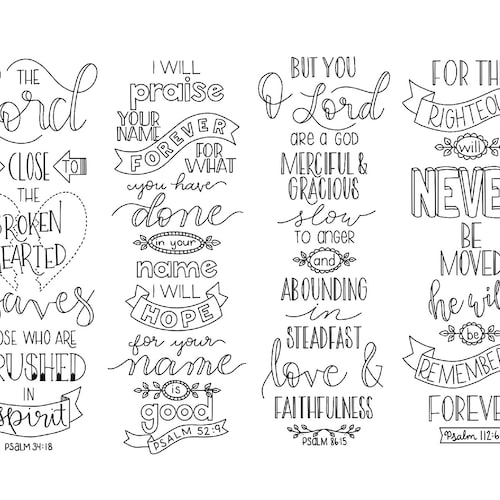 THE
Lord
CLOSE TO
THE
BROKEN
EARTED
aves
OSE WHO ARE
RUSHED
IN
spirit
PSALM 34:18
I WILL
praise
YOUR
NAME
FOREVER
FOR
WHAT
you have
done
in your
name
I WILL
HOPE
for your
name
is
good
PSALM 52:9
BUT YOU
O Lord
ARE A GOD
MERCIFUL &
GRACIOUS
slow
TO ANGER
and
ABOUNDING
IN
STEADFAST
love &
FAITHFULNESS
PSALM 86:15
FOR THE
RIGHTEOU
will
NEVE
BE
MOVED
he will
be
REMEMBERE
FOREVER
Psalm 112:6